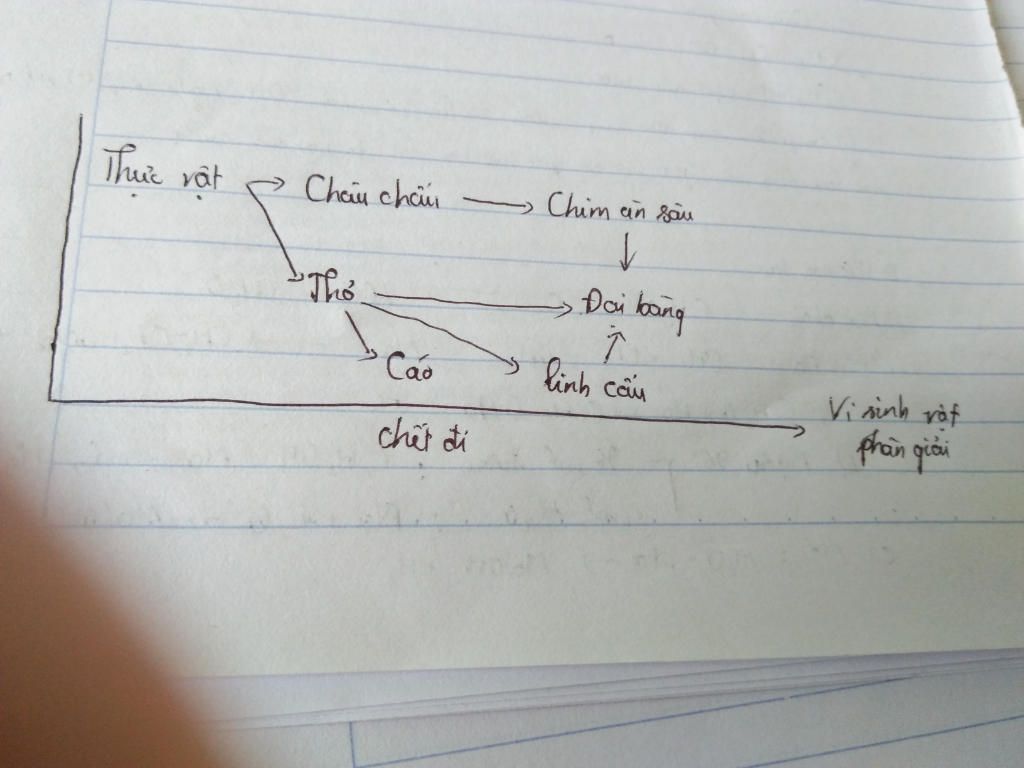 Thực vật → Châu chấu → Chim ăn sâu
Thỏ → Đại bàng
Cáo
linh cẩu
chết đi
Vi sinh vật
phân giải